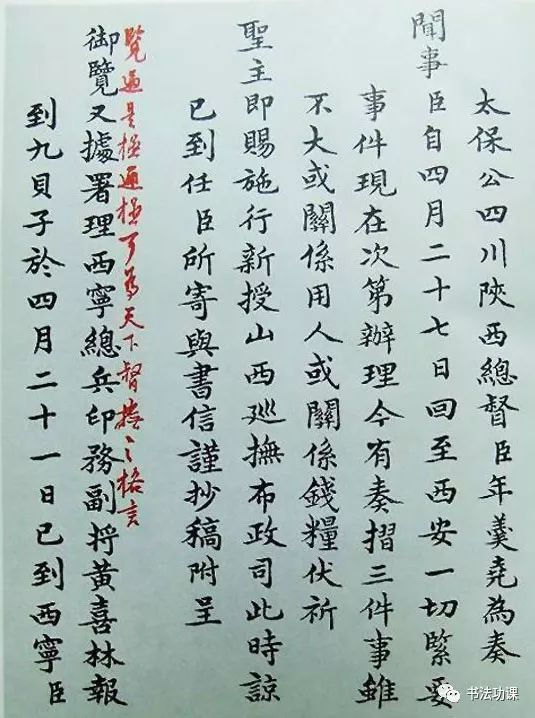 太保公四川陝西總督臣年羹堯為奏
聞事臣自四月二十七日回至西安一切緊要
事件現在次第辦理今有奏摺三件事雖
不大或關係用人或關係錢糧伏祈
聖主即賜施行新授山西巡撫布政司此時諒
已到任臣所寄與書信謹抄稿附呈
覽過是極通極可為天下督撫之格言
御覽又據署理西寧總兵印務副將黃喜林報
到九貝子於四月二十一日已到西寧臣
书法功课